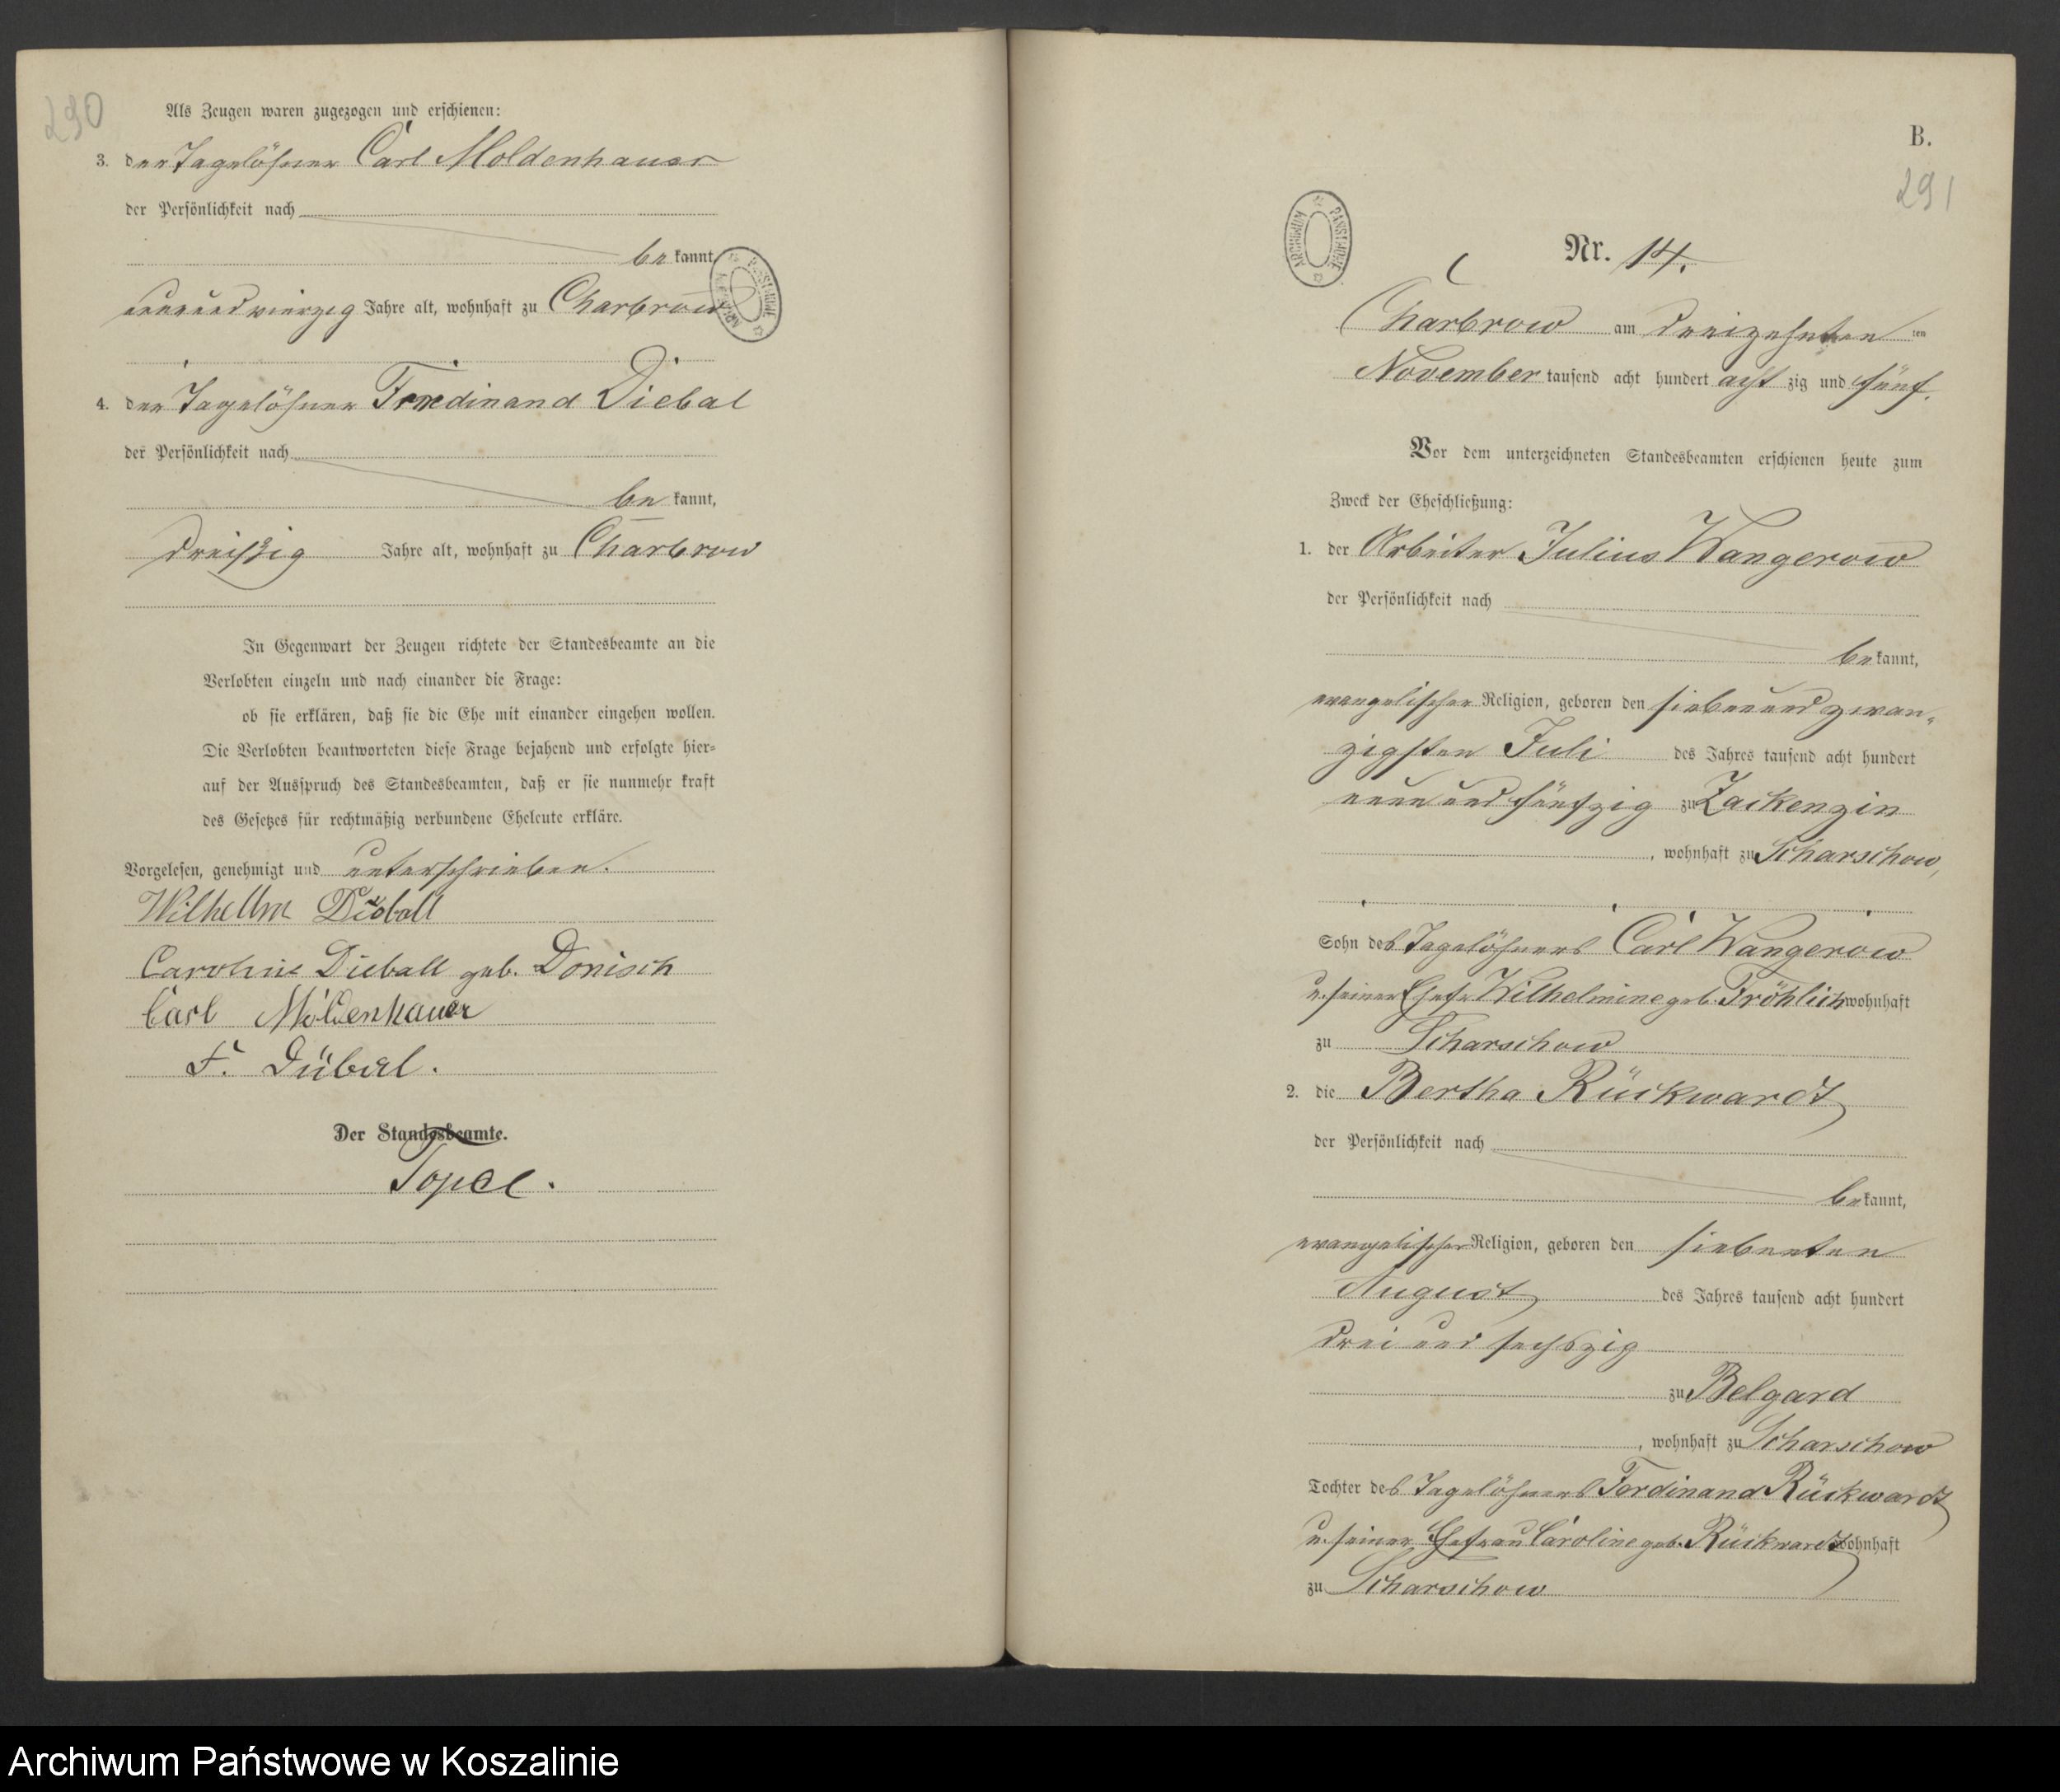 290
Als Zeugen waren zugezogen und erschienen:
3. der Tagelöhner Carl Moldenhauer
der Persönlichkeit nach
be kannt,
neunundvierzig Jahre alt, wohnhaft zu Charbrow
4. der Tagelöhner Ferdinand Diebal
der Persönlichkeit nach
be kannt,
dreißig Jahre alt, wohnhaft zu Charbrow
In Gegenwart der Zeugen richtete der Standesbeamte an die
Verlobten einzeln und nach einander die Frage:
ob sie erklären, daß sie die Ehe mit einander eingehen wollen.
Die Verlobten beantworteten diese Frage bejahend und erfolgte hier-
auf der Ausspruch des Standesbeamten, daß er sie nunmehr kraft
des Gesetzes für rechtmäßig verbundene Eheleute erkläre.
Vorgelesen, genehmigt und unterschrieben.
Wilhelm Dieball
Caroline Dieball geb. Donisch
Carl Moldenhauer
F. Dübal.
Der Standesbeamte.
Topel.
B.
291
ARCHIWUM PAŃSTWOWE
Nr. 14.
Charbrow am dreizehnten ten
November tausend acht hundert acht zig und fünf.
Vor dem unterzeichneten Standesbeamten erschienen heute zum
Zweck der Eheschließung:
1. der Arbeiter Julius Wangerow
der Persönlichkeit nach
be kannt,
evangelischer Religion, geboren den siebenundzwan-
zigsten Juli des Jahres tausend acht hundert
neun und fünfzig zu Zackenzin
, wohnhaft zu Scharschow,
Sohn des Tagelöhners Carl Wangerow
u. seiner Ehefr Wilhelmine geb. Fröhlich wohnhaft
zu Scharschow
2. die Bertha Rückwardt
der Persönlichkeit nach
be kannt,
evangelischer Religion, geboren den siebenten
August des Jahres tausend acht hundert
drei und sechszig
zu Belgard
, wohnhaft zu Scharschow
Tochter des Tagelöhners Ferdinand Rückwardt
u. seiner Ehefrau Caroline geb. Rückwardt wohnhaft
zu Scharschow
Archiwum Państwowe w Koszalinie